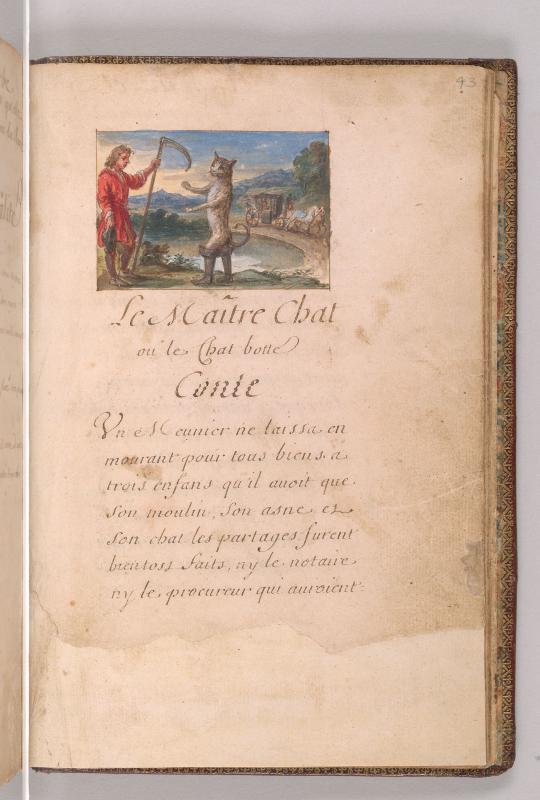 43
Le Maître Chat
ou le Chat botté
Conte
Un Meunier ne laissa en
mourant pour tous biens a
trois enfans qu'il auoit que
son moulin, son asne et
son chat les partages furent
bientost faits, ny le notaire
ny le procureur qui auroient